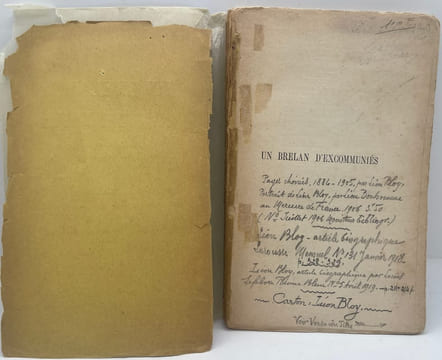 UN BRELAN D'EXCOMMUNIÉS
Pages choisies, 1884-1905, par Léon Bloy,
Portrait de Léon Bloy, par Léon Bonhomme
au Mercure de France 1906 3.50
(No Juillet 1906
Léon Bloy - article biographique
Larousse Mensuel No 131 Janvier 1918
Léon Bloy, article biographique par Louis
Lefebvre No 5 Avril 1919
Carton: Léon Bloy.
Voir Verso du Titre